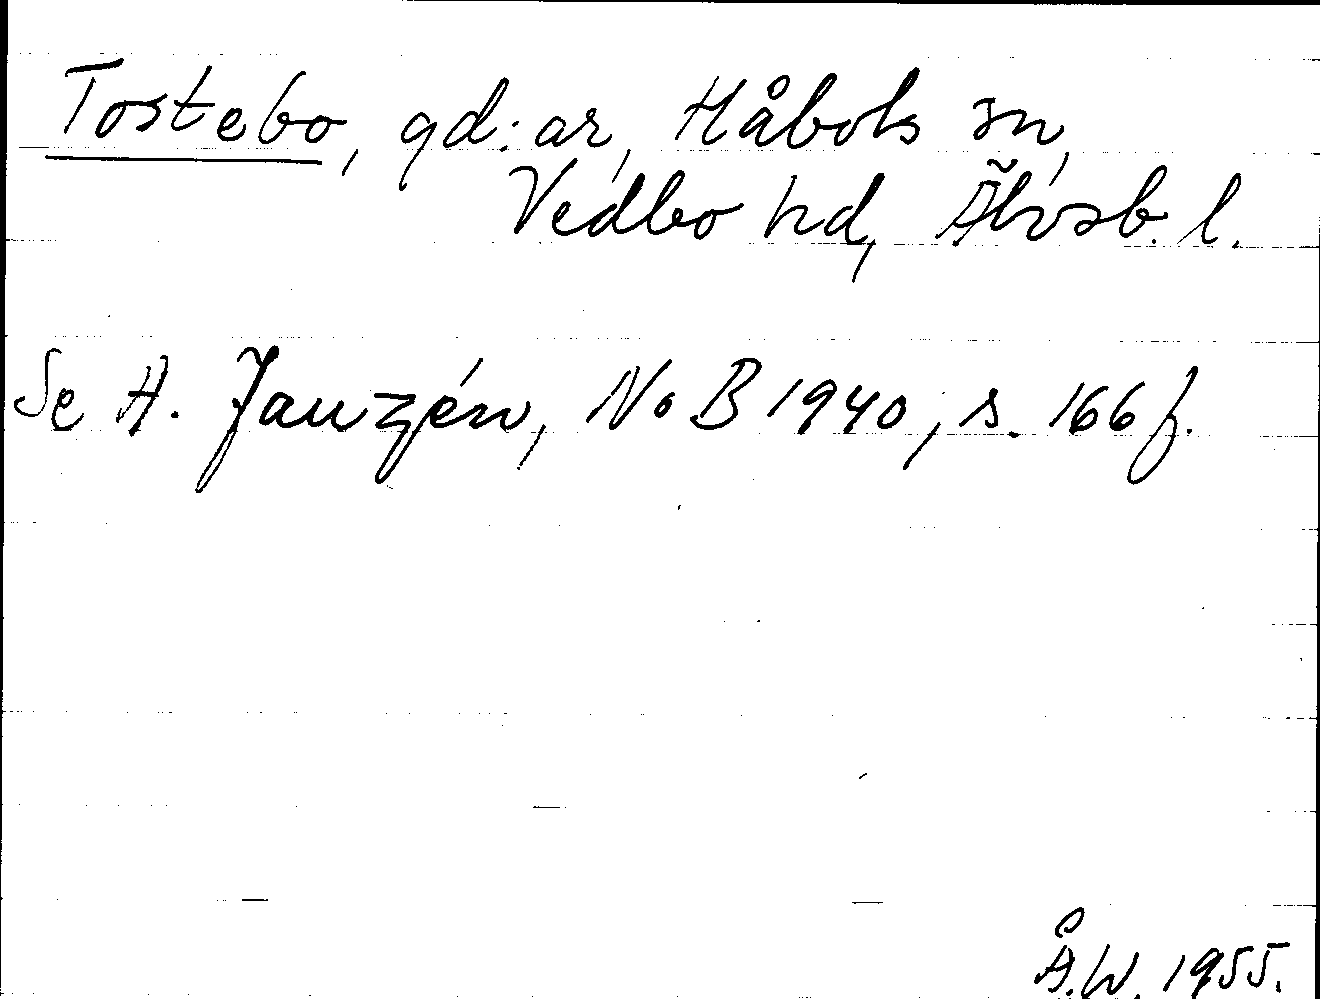 Tostebo, gd:ar, Håbols sn,
Vedbo hd, Älvsb. l.
Se A. Janzén, NoB 1940, s. 166 f.
Å.W. 1955.